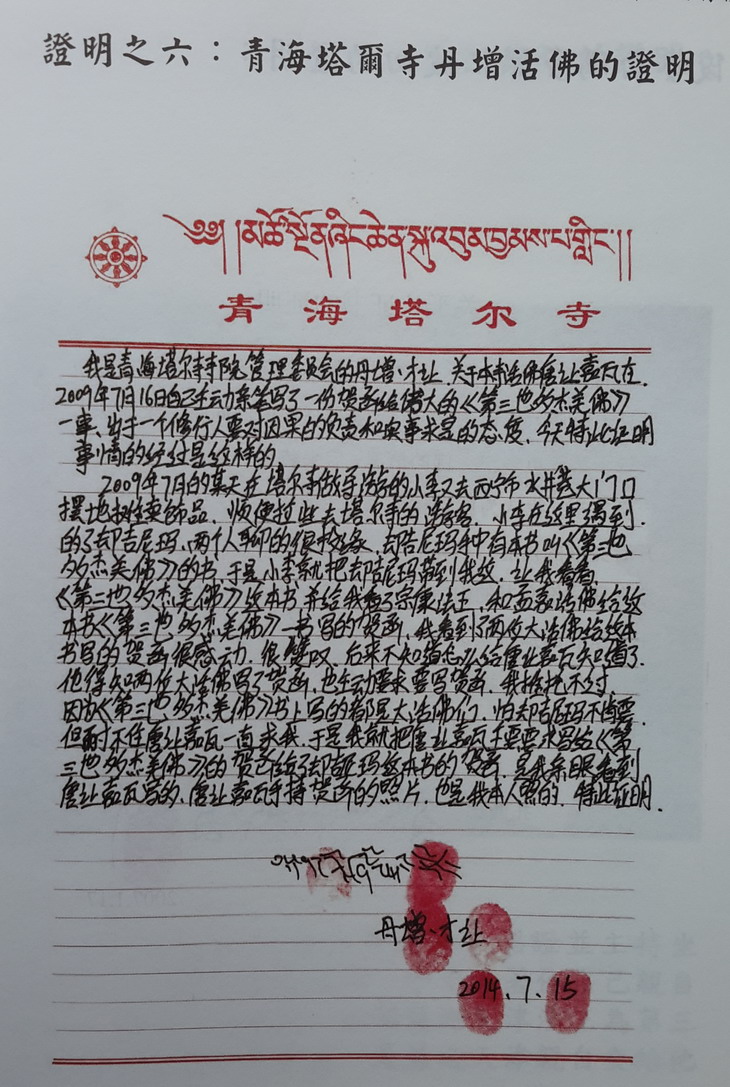 證明之六：青海塔爾寺丹增活佛的證明
༄༅། །མཚོ་སྔོན་ཞིང་ཆེན་སྐུ་འབུམ་བྱམས་པ་གླིང་།།
青海塔尔寺
我是青海塔尔寺寺院管理委员会的丹增·才让。关于本寺活佛唐让嘉瓦在
2009年7月16日自己主动亲笔写了一份贺函给伟大的《第三世多杰羌佛》
一事，出于一个修行人要对因果的负责和实事求是的态度，今天特此证明
事情的经过是这样的。
2009年7月的某天在塔尔寺做导游的小李又去西宁市水井巷大门口
摆地摊卖饰品，顺便拉些去塔尔寺的游客，小李在这里遇到
的了却吉尼玛，两个人聊的很投缘，却吉尼玛手中有本书叫《第三世
多杰羌佛》的书，于是小李就把却吉尼玛带到我这，让我看看
《第三世多杰羌佛》这本书，并给我看了宗康法王，和孟嘉活佛给这
本书《第三世多杰羌佛》一书写的贺函，我看到了两位大活佛给这本
书写的贺函很感动，很赞叹，后来不知道怎么给唐让嘉瓦知道了
他得知两位大活佛写了贺函，也主动要求要写贺函，我推托不过，
因为《第三世多杰羌佛》书上写的都是大活佛们，怕却吉尼玛不肯要
但耐不住唐让嘉瓦一直求我，于是我就把唐让嘉瓦主要要求写给《第
三世多杰羌佛》的贺函给了却吉尼玛这本书的贺函，是我亲眼看到
唐让嘉瓦写的，唐让嘉瓦手持贺函的照片，也是我本人照的，特此证明。
丹增·才让
2014.7.15